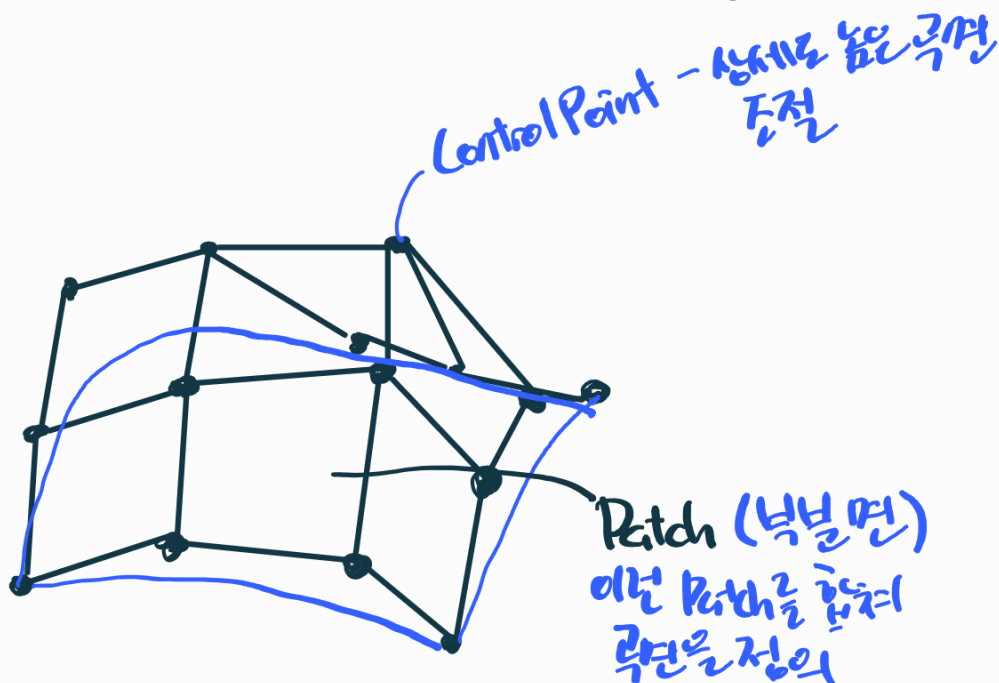 Control Point - 상세도 높은 곡면
조절
Patch (부분 면)
이런 Patch를 합쳐
곡면을 정의